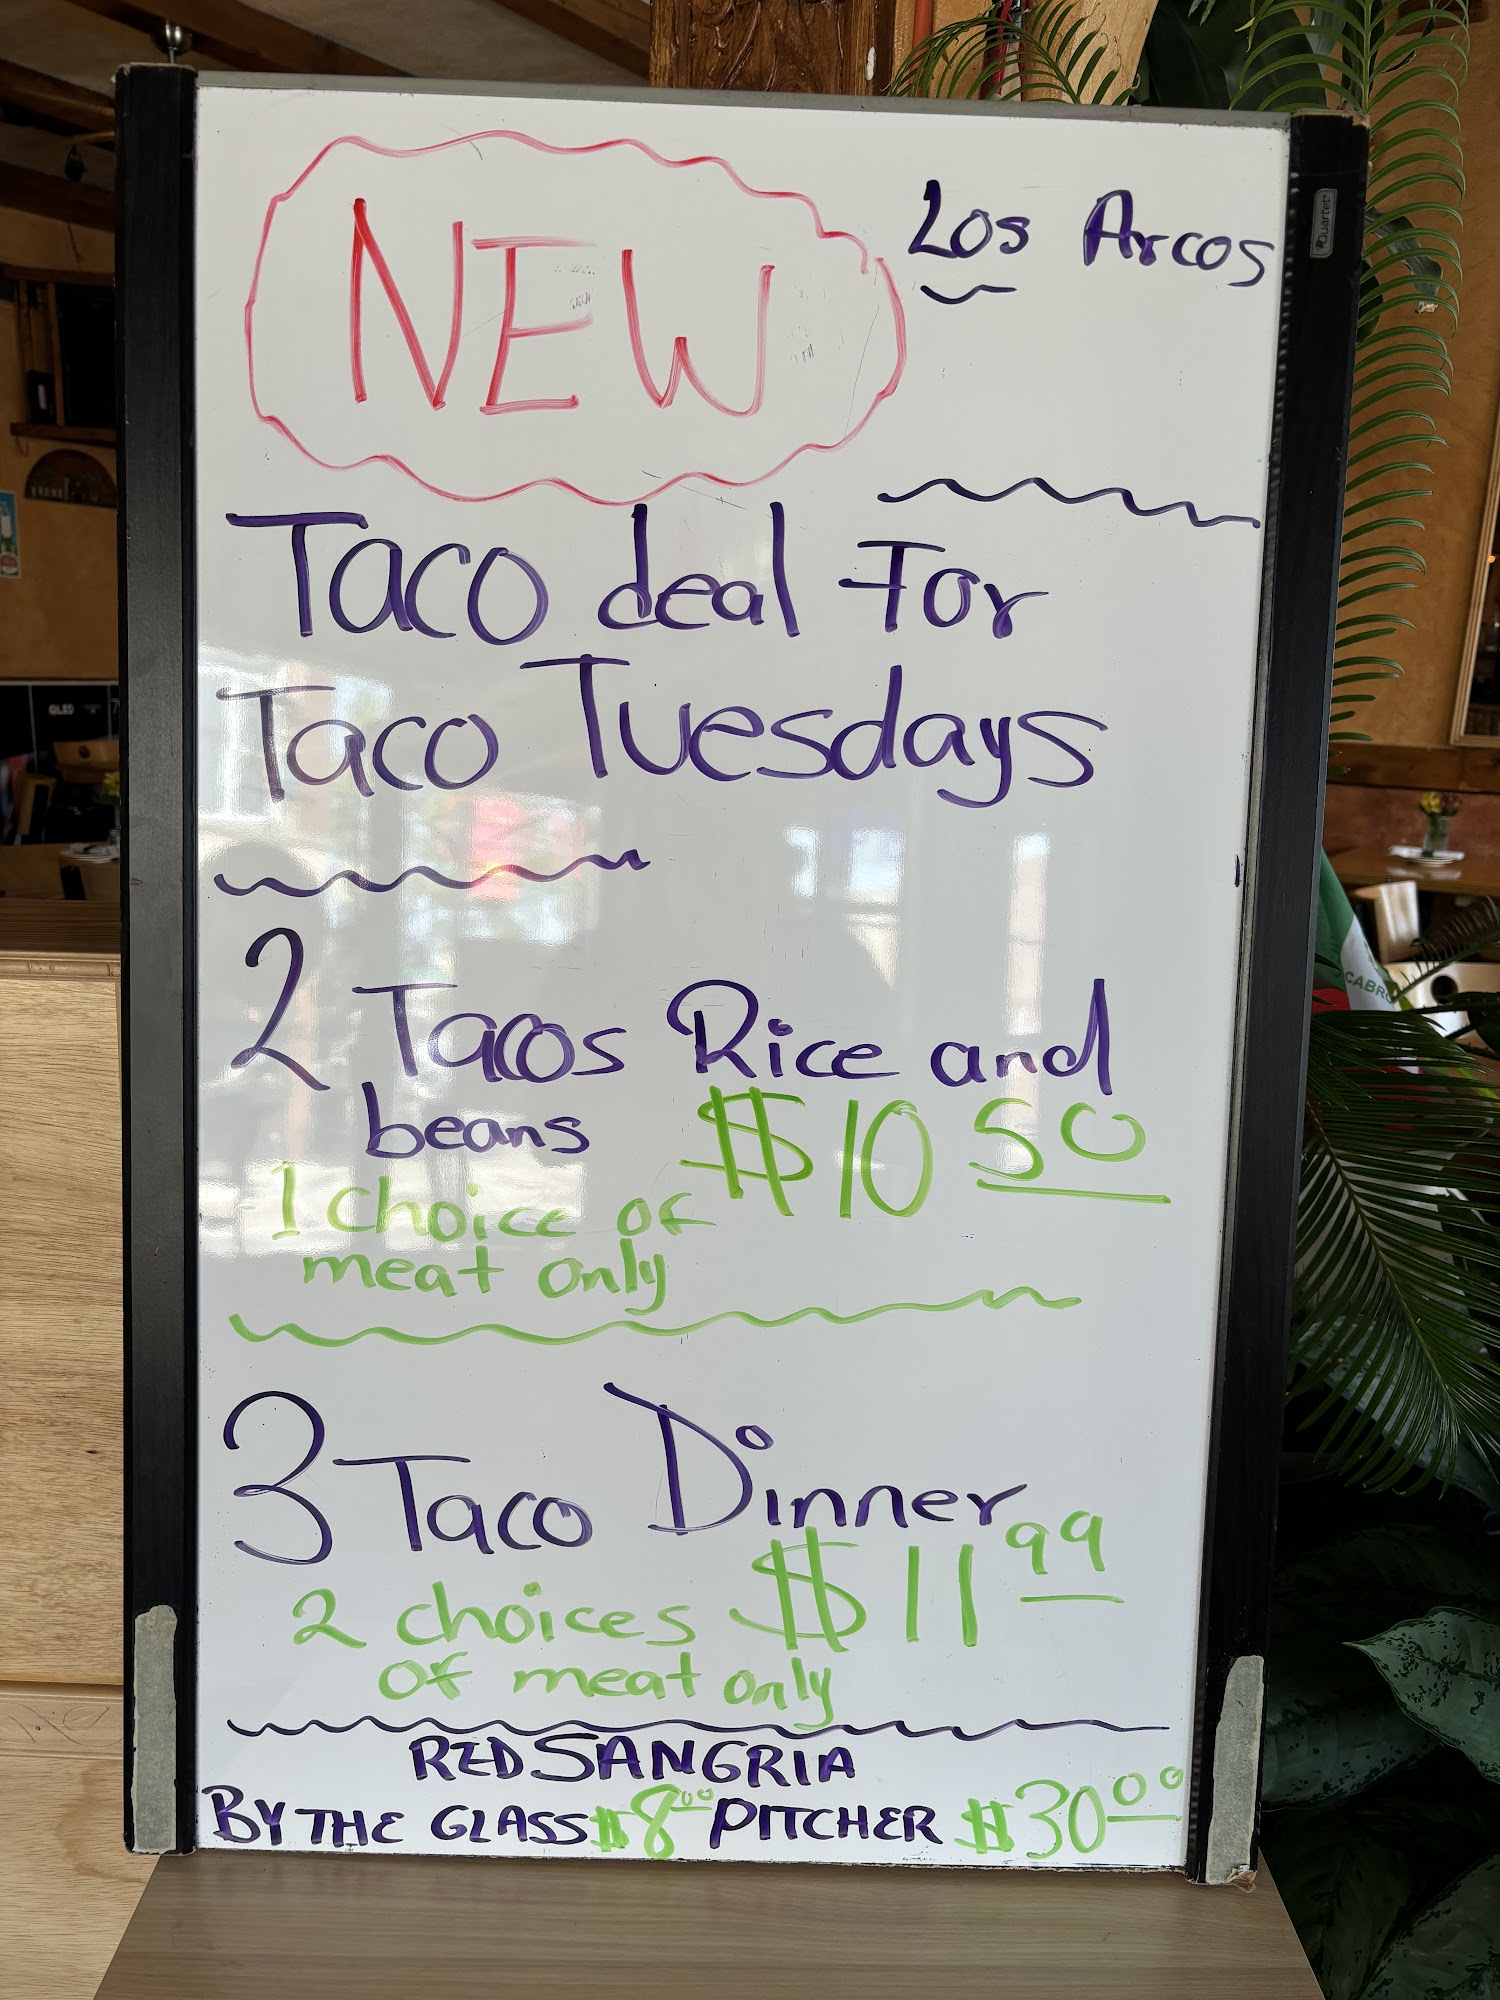 NEW
Los Arcos
Quartet
Taco deal For
Taco Tuesdays
QLED
2 Tacos Rice and
beans $10 50
1 choice of
meat only
3 Taco Dinner
$11 99
2 choices
of meat only
RED SANGRIA
BY THE GLASS $8 00 PITCHER $30 00